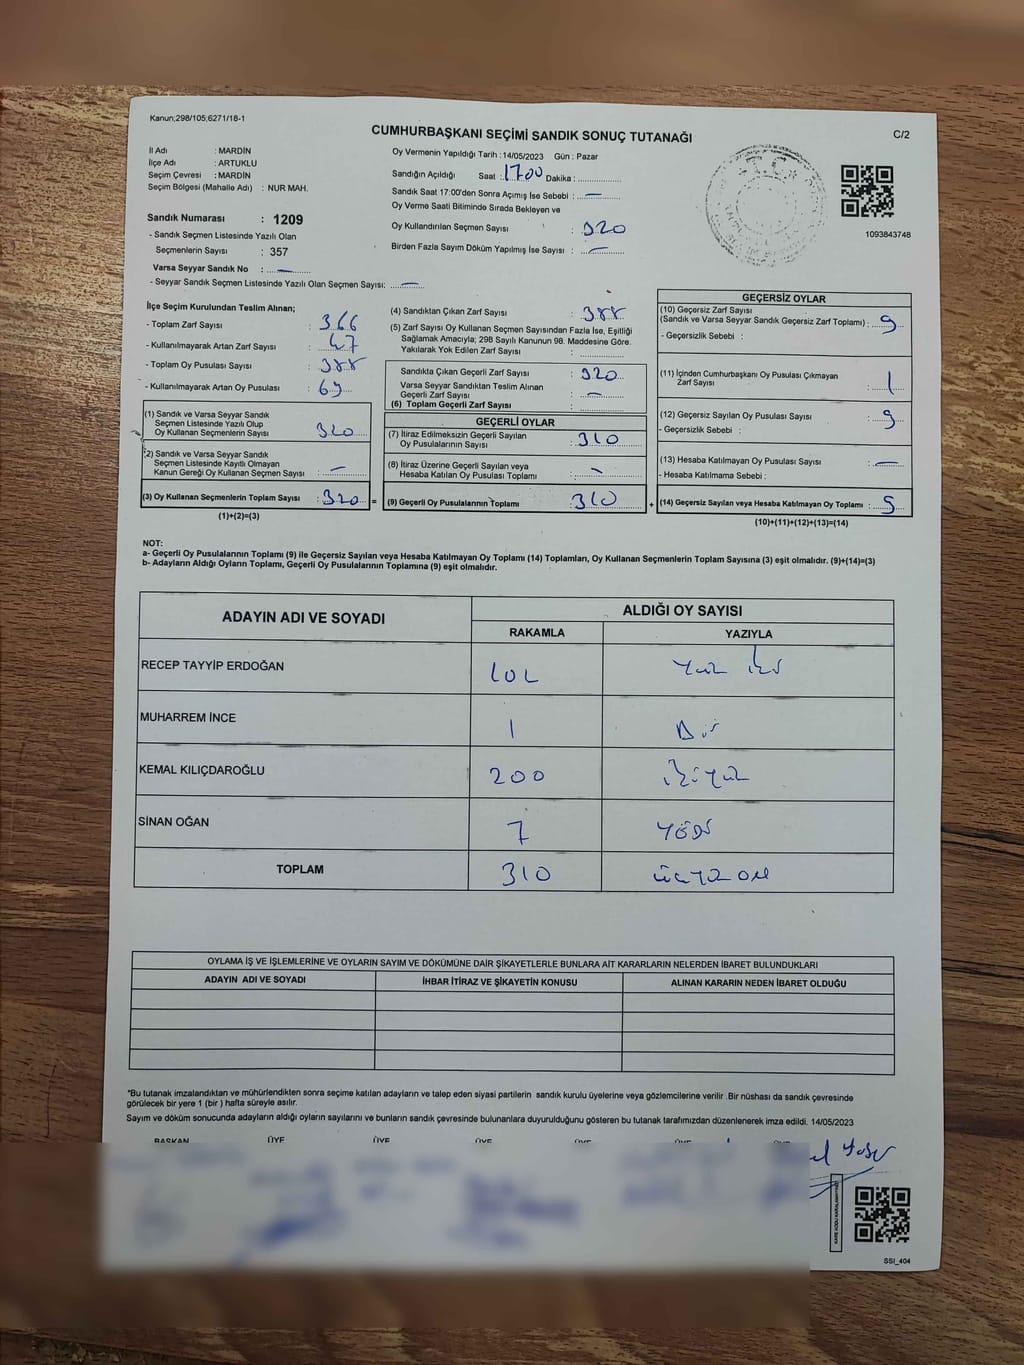 Kanun;298/105;6271/18-1
CUMHURBAŞKANI SEÇİMİ SANDIK SONUÇ TUTANAĞI
C/2
İl Adı : MARDİN
İlçe Adı : ARTUKLU
Seçim Çevresi : MARDİN
Seçim Bölgesi (Mahalle Adı) : NUR MAH.
Sandık Numarası : 1209
- Sandık Seçmen Listesinde Yazılı Olan
Seçmenlerin Sayısı : 357
Varsa Seyyar Sandık No : —
- Seyyar Sandık Seçmen Listesinde Yazılı Olan Seçmen Sayısı: —
Oy Vermenin Yapıldığı Tarih : 14/05/2023 Gün : Pazar
Sandığın Açıldığı Saat : 1700 Dakika :
Sandık Saat 17:00'den Sonra Açımış İse Sebebi : —
Oy Verme Saati Bitiminde Sırada Bekleyen ve
Oy Kullandırılan Seçmen Sayısı : 320
Birden Fazla Sayım Döküm Yapılmış İse Sayısı : —
1093843748
İlçe Seçim Kurulundan Teslim Alınan;
- Toplam Zarf Sayısı : 366
- Kullanılmayarak Artan Zarf Sayısı : 47
- Toplam Oy Pusulası Sayısı : 388
- Kullanılmayarak Artan Oy Pusulası : 69
(1) Sandık ve Varsa Seyyar Sandık
Seçmen Listesinde Yazılı Olup
Oy Kullanan Seçmenlerin Sayısı : 320
(2) Sandık ve Varsa Seyyar Sandık
Seçmen Listesinde Kayıtlı Olmayan
Kanun Gereği Oy Kullanan Seçmen Sayısı : —
(3) Oy Kullanan Seçmenlerin Toplam Sayısı : 320 =
(1)+(2)=(3)
(4) Sandıktan Çıkan Zarf Sayısı : 388
(5) Zarf Sayısı Oy Kullanan Seçmen Sayısından Fazla İse, Eşitliği
Sağlamak Amacıyla; 298 Sayılı Kanunun 98. Maddesine Göre.
Yakılarak Yok Edilen Zarf Sayısı :
Sandıkta Çıkan Geçerli Zarf Sayısı : 320
Varsa Seyyar Sandıktan Teslim Alınan
Geçerli Zarf Sayısı : —
(6) Toplam Geçerli Zarf Sayısı :
GEÇERLİ OYLAR
(7) İtiraz Edilmeksizin Geçerli Sayılan
Oy Pusulalarının Sayısı : 310
(8) İtiraz Üzerine Geçerli Sayılan veya
Hesaba Katılan Oy Pusulası Toplamı : —
(9) Geçerli Oy Pusulalarının Toplamı : 310 +
GEÇERSİZ OYLAR
(10) Geçersiz Zarf Sayısı
(Sandık ve Varsa Seyyar Sandık Geçersiz Zarf Toplamı) : 9
- Geçersizlik Sebebi :
(11) İçinden Cumhurbaşkanı Oy Pusulası Çıkmayan
Zarf Sayısı : 1
(12) Geçersiz Sayılan Oy Pusulası Sayısı : 9
- Geçersizlik Sebebi :
(13) Hesaba Katılmayan Oy Pusulası Sayısı : —
- Hesaba Katılmama Sebebi :
(14) Geçersiz Sayılan veya Hesaba Katılmayan Oy Toplamı :
(10)+(11)+(12)+(13)=(14)
NOT:
a- Geçerli Oy Pusulalarının Toplamı (9) ile Geçersiz Sayılan veya Hesaba Katılmayan Oy Toplamı (14) Toplamları, Oy Kullanan Seçmenlerin Toplam Sayısına (3) eşit olmalıdır. (9)+(14)=(3)
b- Adayların Aldığı Oyların Toplamı, Geçerli Oy Pusulalarının Toplamına (9) eşit olmalıdır.
ADAYIN ADI VE SOYADI
ALDIĞI OY SAYISI
RAKAMLA YAZIYLA
RECEP TAYYİP ERDOĞAN 102 Yüz iki
MUHARREM İNCE 1 Bir
KEMAL KILIÇDAROĞLU 200 ikiyüz
SİNAN OĞAN 7 YEDİ
TOPLAM 310 üçyüz on
OYLAMA İŞ VE İŞLEMLERİNE VE OYLARIN SAYIM VE DÖKÜMÜNE DAİR ŞİKAYETLERLE BUNLARA AİT KARARLARIN NELERDEN İBARET BULUNDUKLARI
ADAYIN ADI VE SOYADI İHBAR İTİRAZ VE ŞİKAYETİN KONUSU ALINAN KARARIN NEDEN İBARET OLDUĞU
"Bu tutanak imzalandıktan ve mühürlendikten sonra seçime katılan adayların ve talep eden siyasi partilerin sandık kurulu üyelerine veya gözlemcilerine verilir .Bir nüshası da sandık çevresinde
görülecek bir yere 1 (bir ) hafta süreyle asılır.
Sayım ve döküm sonucunda adayların aldığı oyların sayılarını ve bunların sandık çevresinde bulunanlara duyurulduğunu gösteren bu tutanak tarafımızdan düzenlenerek imza edildi. 14/05/2023
BAŞKAN ÜYE ÜYE ÜYE ÜYE ÜYE ÜYE
SSI_404